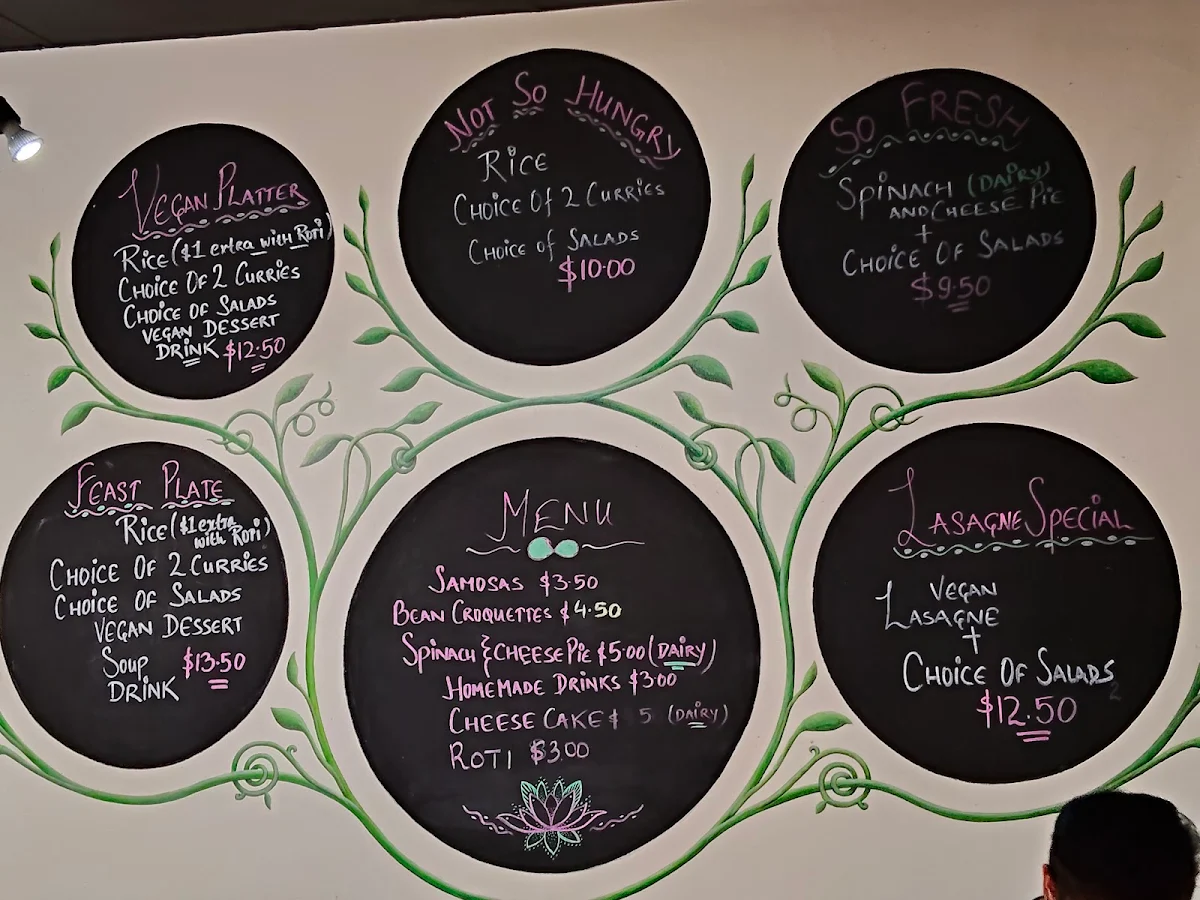 VEGAN PLATTER
RICE ($1 extra with ROTI)
CHOICE OF 2 CURRIES
CHOICE OF SALADS
VEGAN DESSERT
DRINK $12.50
NOT SO HUNGRY
RICE
CHOICE Of 2 CURRIES
CHOICE of SALADS
$10.00
SO FRESH
SPINACH (DAIRY)
AND CHEESE PIE
+
CHOICE OF SALADS
$9.50
FEAST PLATE
RICE ($1 extra
with ROTI)
CHOICE OF 2 CURRIES
CHOICE OF SALADS
VEGAN DESSERT
SOUP $13.50
DRINK
MENU
SAMOSAS $3.50
BEAN CROQUETTES $4.50
SPINACH & CHEESE PIE $5.00 (DAIRY)
HOMEMADE DRINKS $3.00
CHEESE CAKE $ 5 (DAIRY)
ROTI $3.00
LASAGNE SPECIAL
VEGAN
LASAGNE
+
CHOICE OF SALADS
$12.50